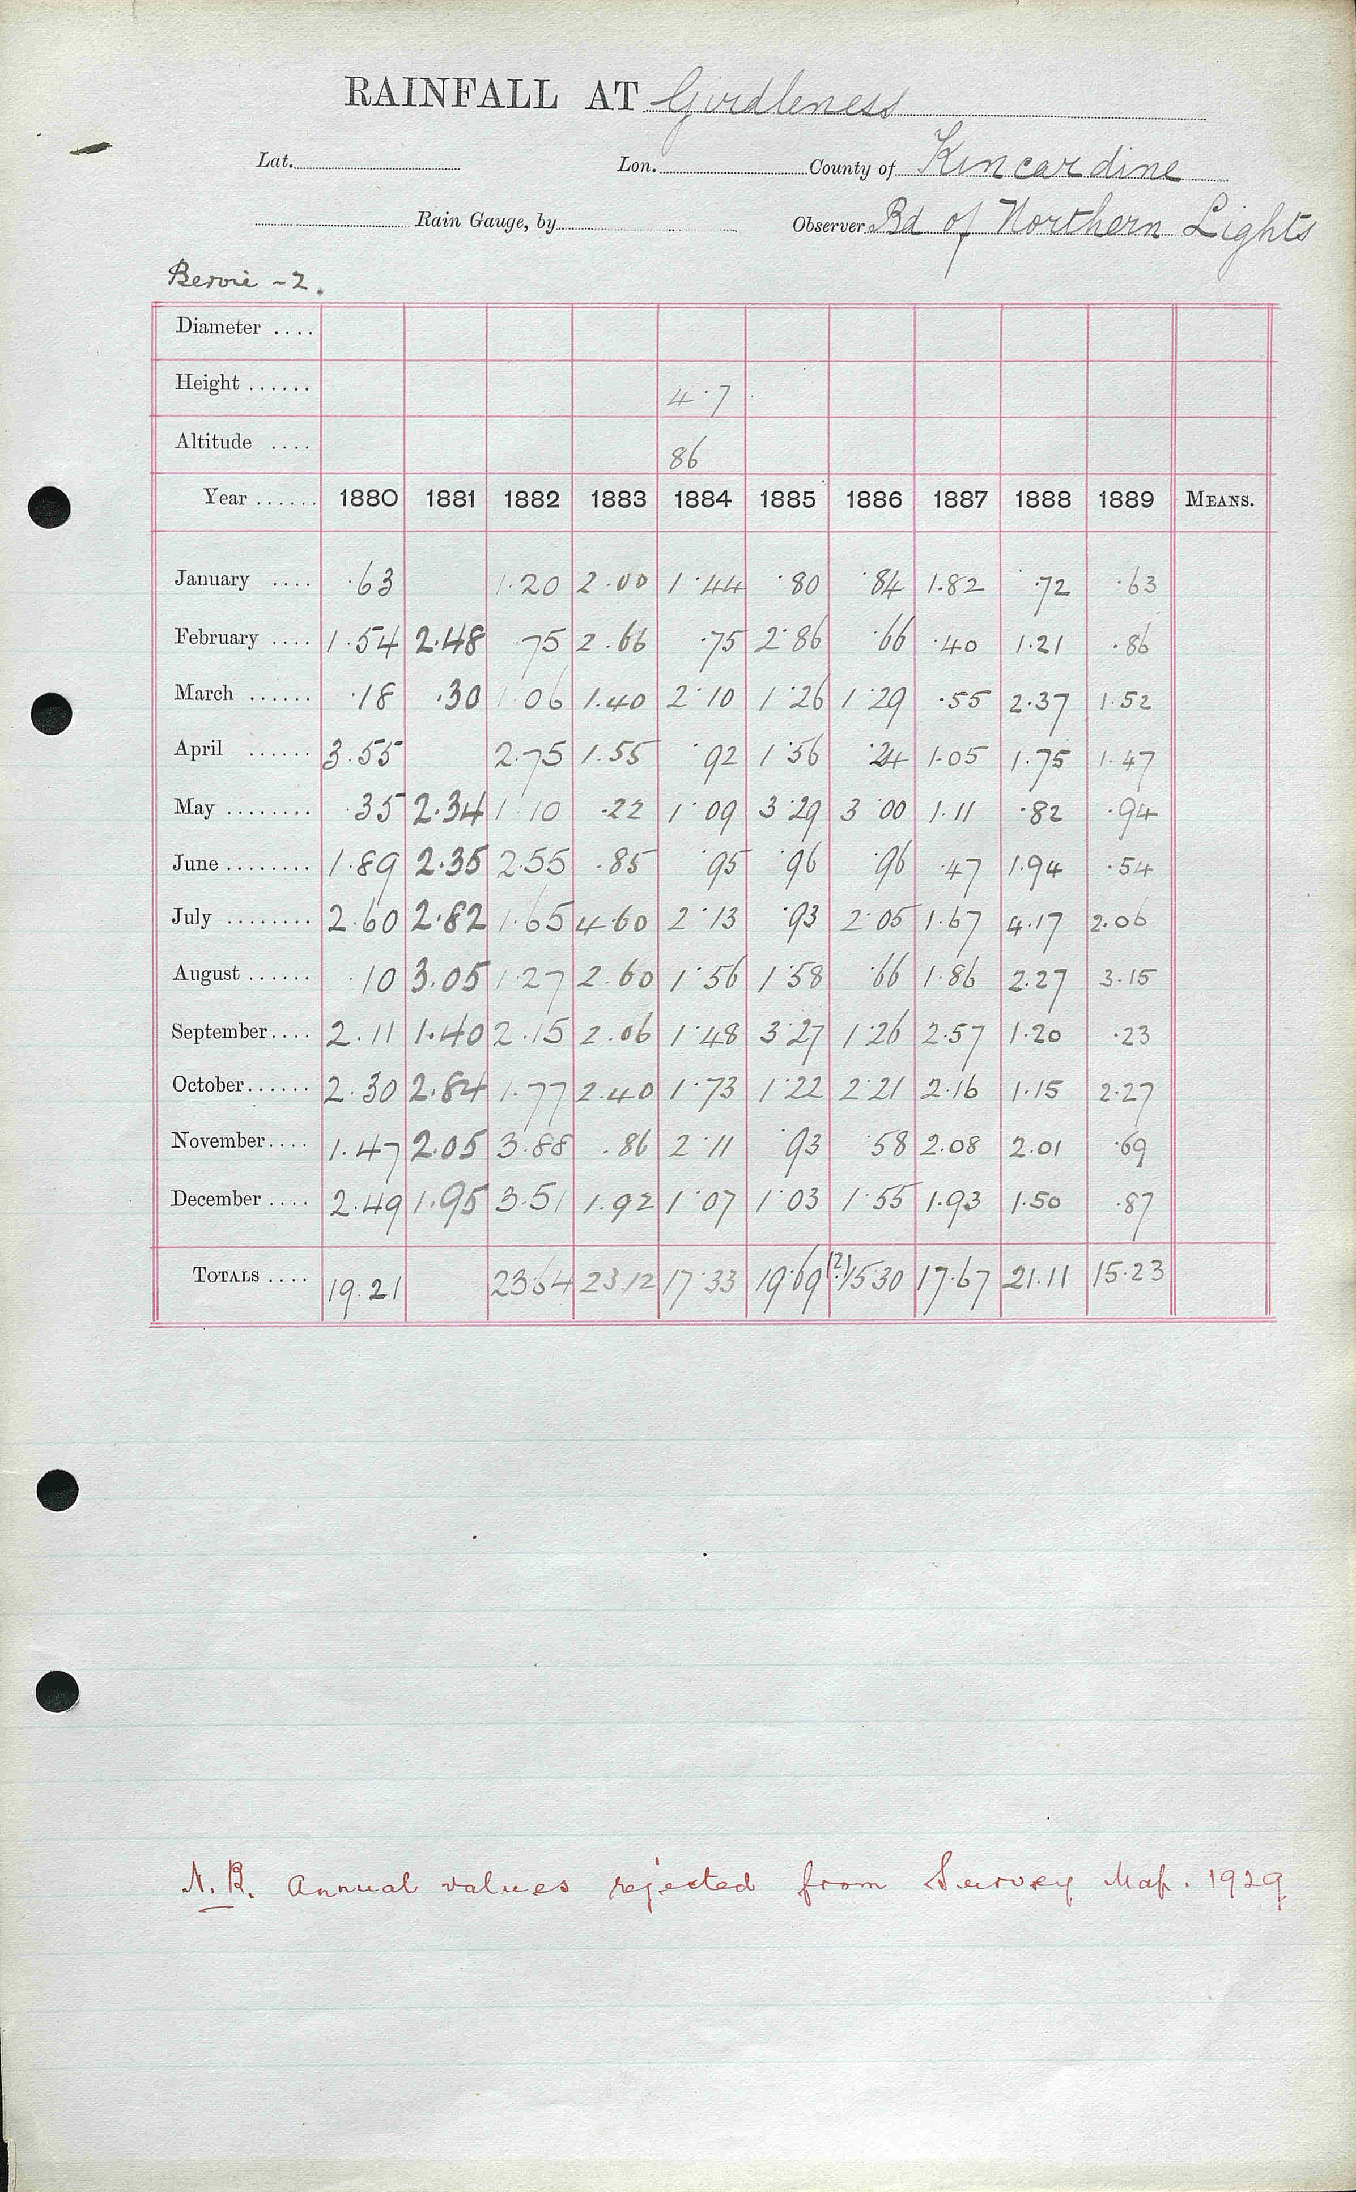 RAINFALL AT Girdleness
Lat. Lon. County of Kincardine
Rain Gauge, by Observer Bd of Northern Lights
Bervie -2.
Diameter ....
Height ...... 4.7
Altitude .... 86
Year ...... 1880 1881 1882 1883 1884 1885 1886 1887 1888 1889 MEANS.
January .... .63 1.20 2.00 1.44 .80 .84 1.82 .72 .63
February .... 1.54 2.48 .75 2.66 .75 2.86 .66 .40 1.21 .86
March ...... .18 .30 1.06 1.40 2.10 1.26 1.29 .55 2.37 1.52
April ...... 3.55 2.75 1.55 .92 1.56 .24 1.05 1.75 1.47
May ........ .35 2.34 1.10 .22 1.09 3.29 3.00 1.11 .82 .94
June ........ 1.89 2.35 2.55 .85 .95 .96 .96 .47 1.94 .54
July ........ 2.60 2.82 1.65 4.60 2.13 .93 2.05 1.67 4.17 2.06
August ...... .10 3.05 1.27 2.60 1.56 1.58 .66 1.86 2.27 3.15
September .... 2.11 1.40 2.15 2.06 1.48 3.27 1.26 2.57 1.20 .23
October ...... 2.30 2.84 1.77 2.40 1.73 1.22 2.21 2.16 1.15 2.27
November .... 1.47 2.05 3.88 .86 2.11 .93 .58 2.08 2.01 .69
December .... 2.49 1.95 3.51 1.92 1.07 1.03 1.55 1.93 1.50 .87
TOTALS .... 19.21 23.64 23.12 17.33 19.69 (?) 15.30 17.67 21.11 15.23
N.B. Annual values rejected from Survey Map. 1929